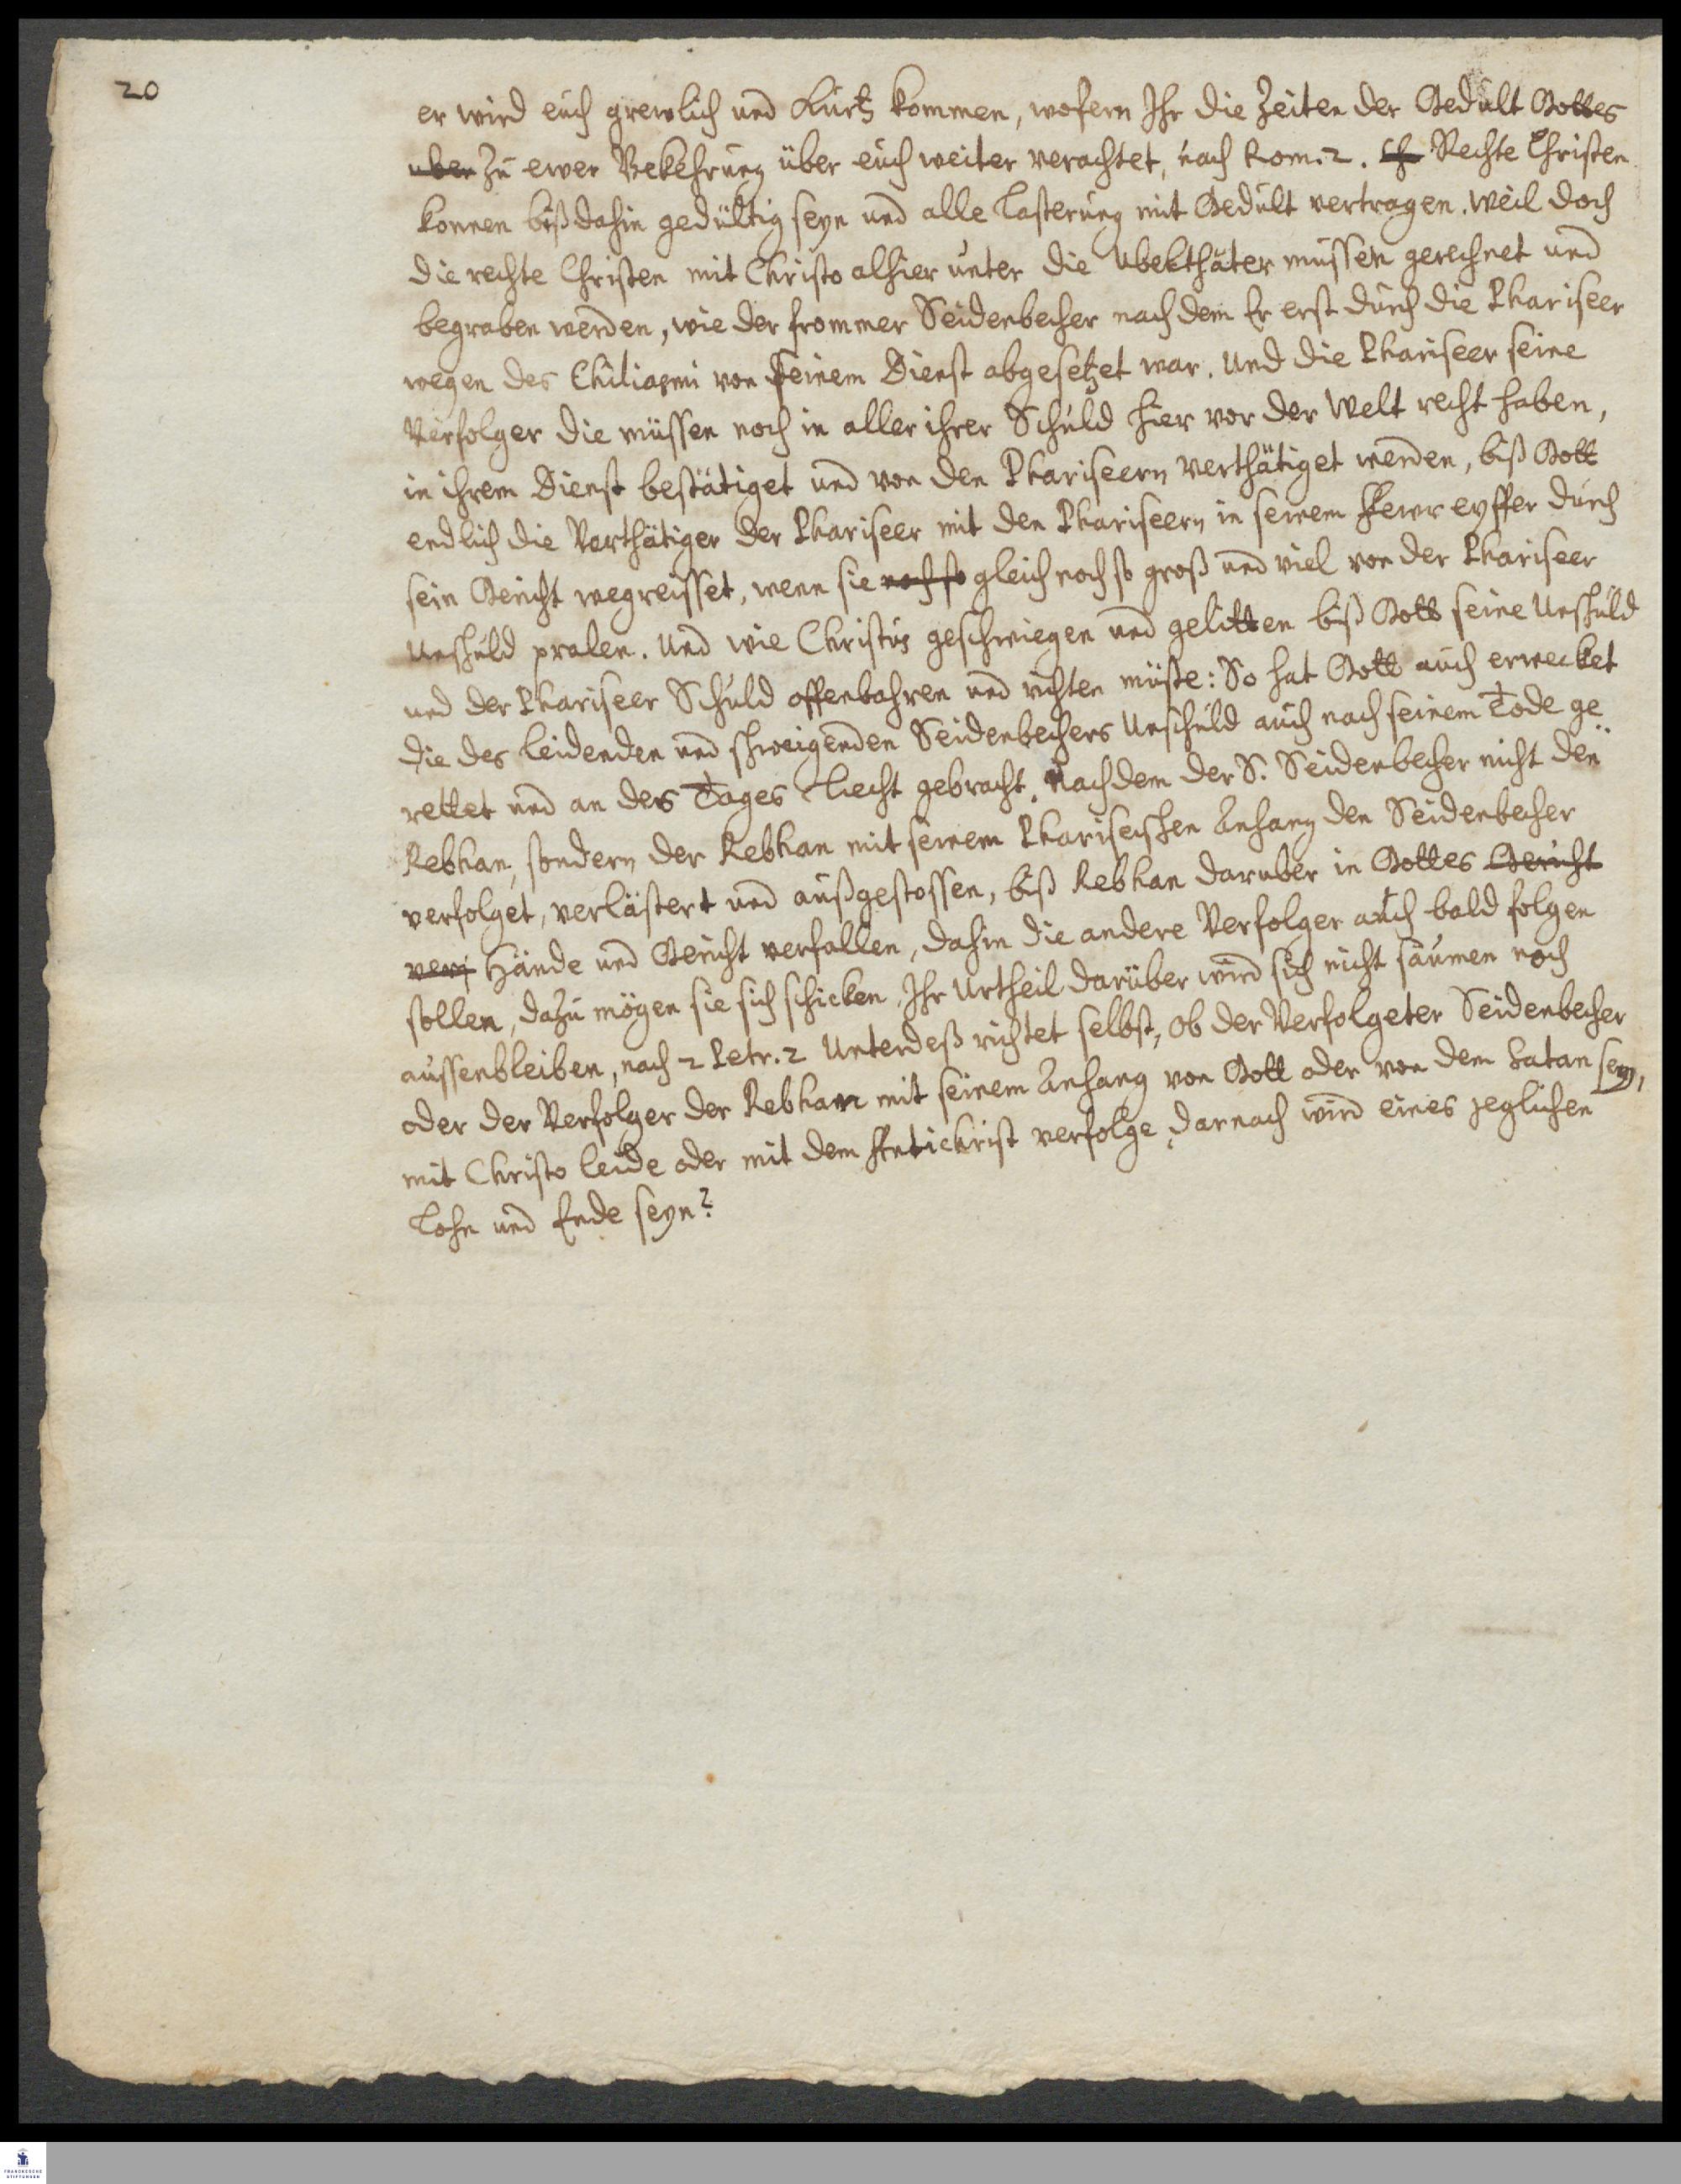 20
er wird euch grewlich und kurtz kommen, wofern Ihr die Zeiten der Gedult Gottes
uber zu ewer Bekehrung über euch weiter verachtet, nach Rom. 2. Ch Rechte Christen
konnen biß dahin gedültig seyn und alle Lasterung mit Gedult vertragen. weil doch
die rechte Christen mit Christo alhier unter die Ubelthäter müssen gerechnet und
begraben werden, wie der frommer Seidenbecher nach dem Er erst durch die Phariseer
wegen des Chiliasmi von seinem Dienst abgesetzet war. Und die Phariseer seine
Verfolger die müssen noch in aller ihrer Schuld hier vor der Welt recht haben,
in ihrem Dienst bestätiget und von den Phariseern verthätiget werden, biß Gott
endlich die Verthätiger der Phariseer mit den Phariseern in seinem fewr eyffer durch
sein Gericht wegreisset, wenn sie noch so gleich noch so groß und viel von der Phariseer
Unschuld pralen. Und wie Christus geschwiegen und gelitten biß Gott seine Unschuld
und der Phariseer Schuld offenbahren und richten müste: So hat Gott auch erwecket
die des leidenden und schweigenden Seidenbechers Unschuld auch nach seinem Tode ge
rettet und an des Tages Liecht gebracht. Nachdem der S. Seidenbecher nicht den
Rebhan, sondern der Rebhan mit seinem Phariseischen Anhang den Seidenbecher
verfolget, verlästert und außgestossen, biß Rebhan daruber in Gottes Gericht
verf Hände und Gericht verfallen, dahin die andere Verfolger auch bald folgen
sollen, dazu mögen sie sich schicken. Ihr Urtheil darüber wird sich nicht säumen noch
aussenbleiben, nach 2 Petr. 2 Unterdeß richtet selbst, ob der Verfolgeter Seidenbecher
oder der Verfolger der Rebhan mit seinem Anhang von Gott oder von dem Satan sey,
mit Christo leide oder mit dem Antichrist verfolge, darnach wird eines jeglichen
Lohn und Ende seyn?
FRANCKESCHE
STIFTUNGEN